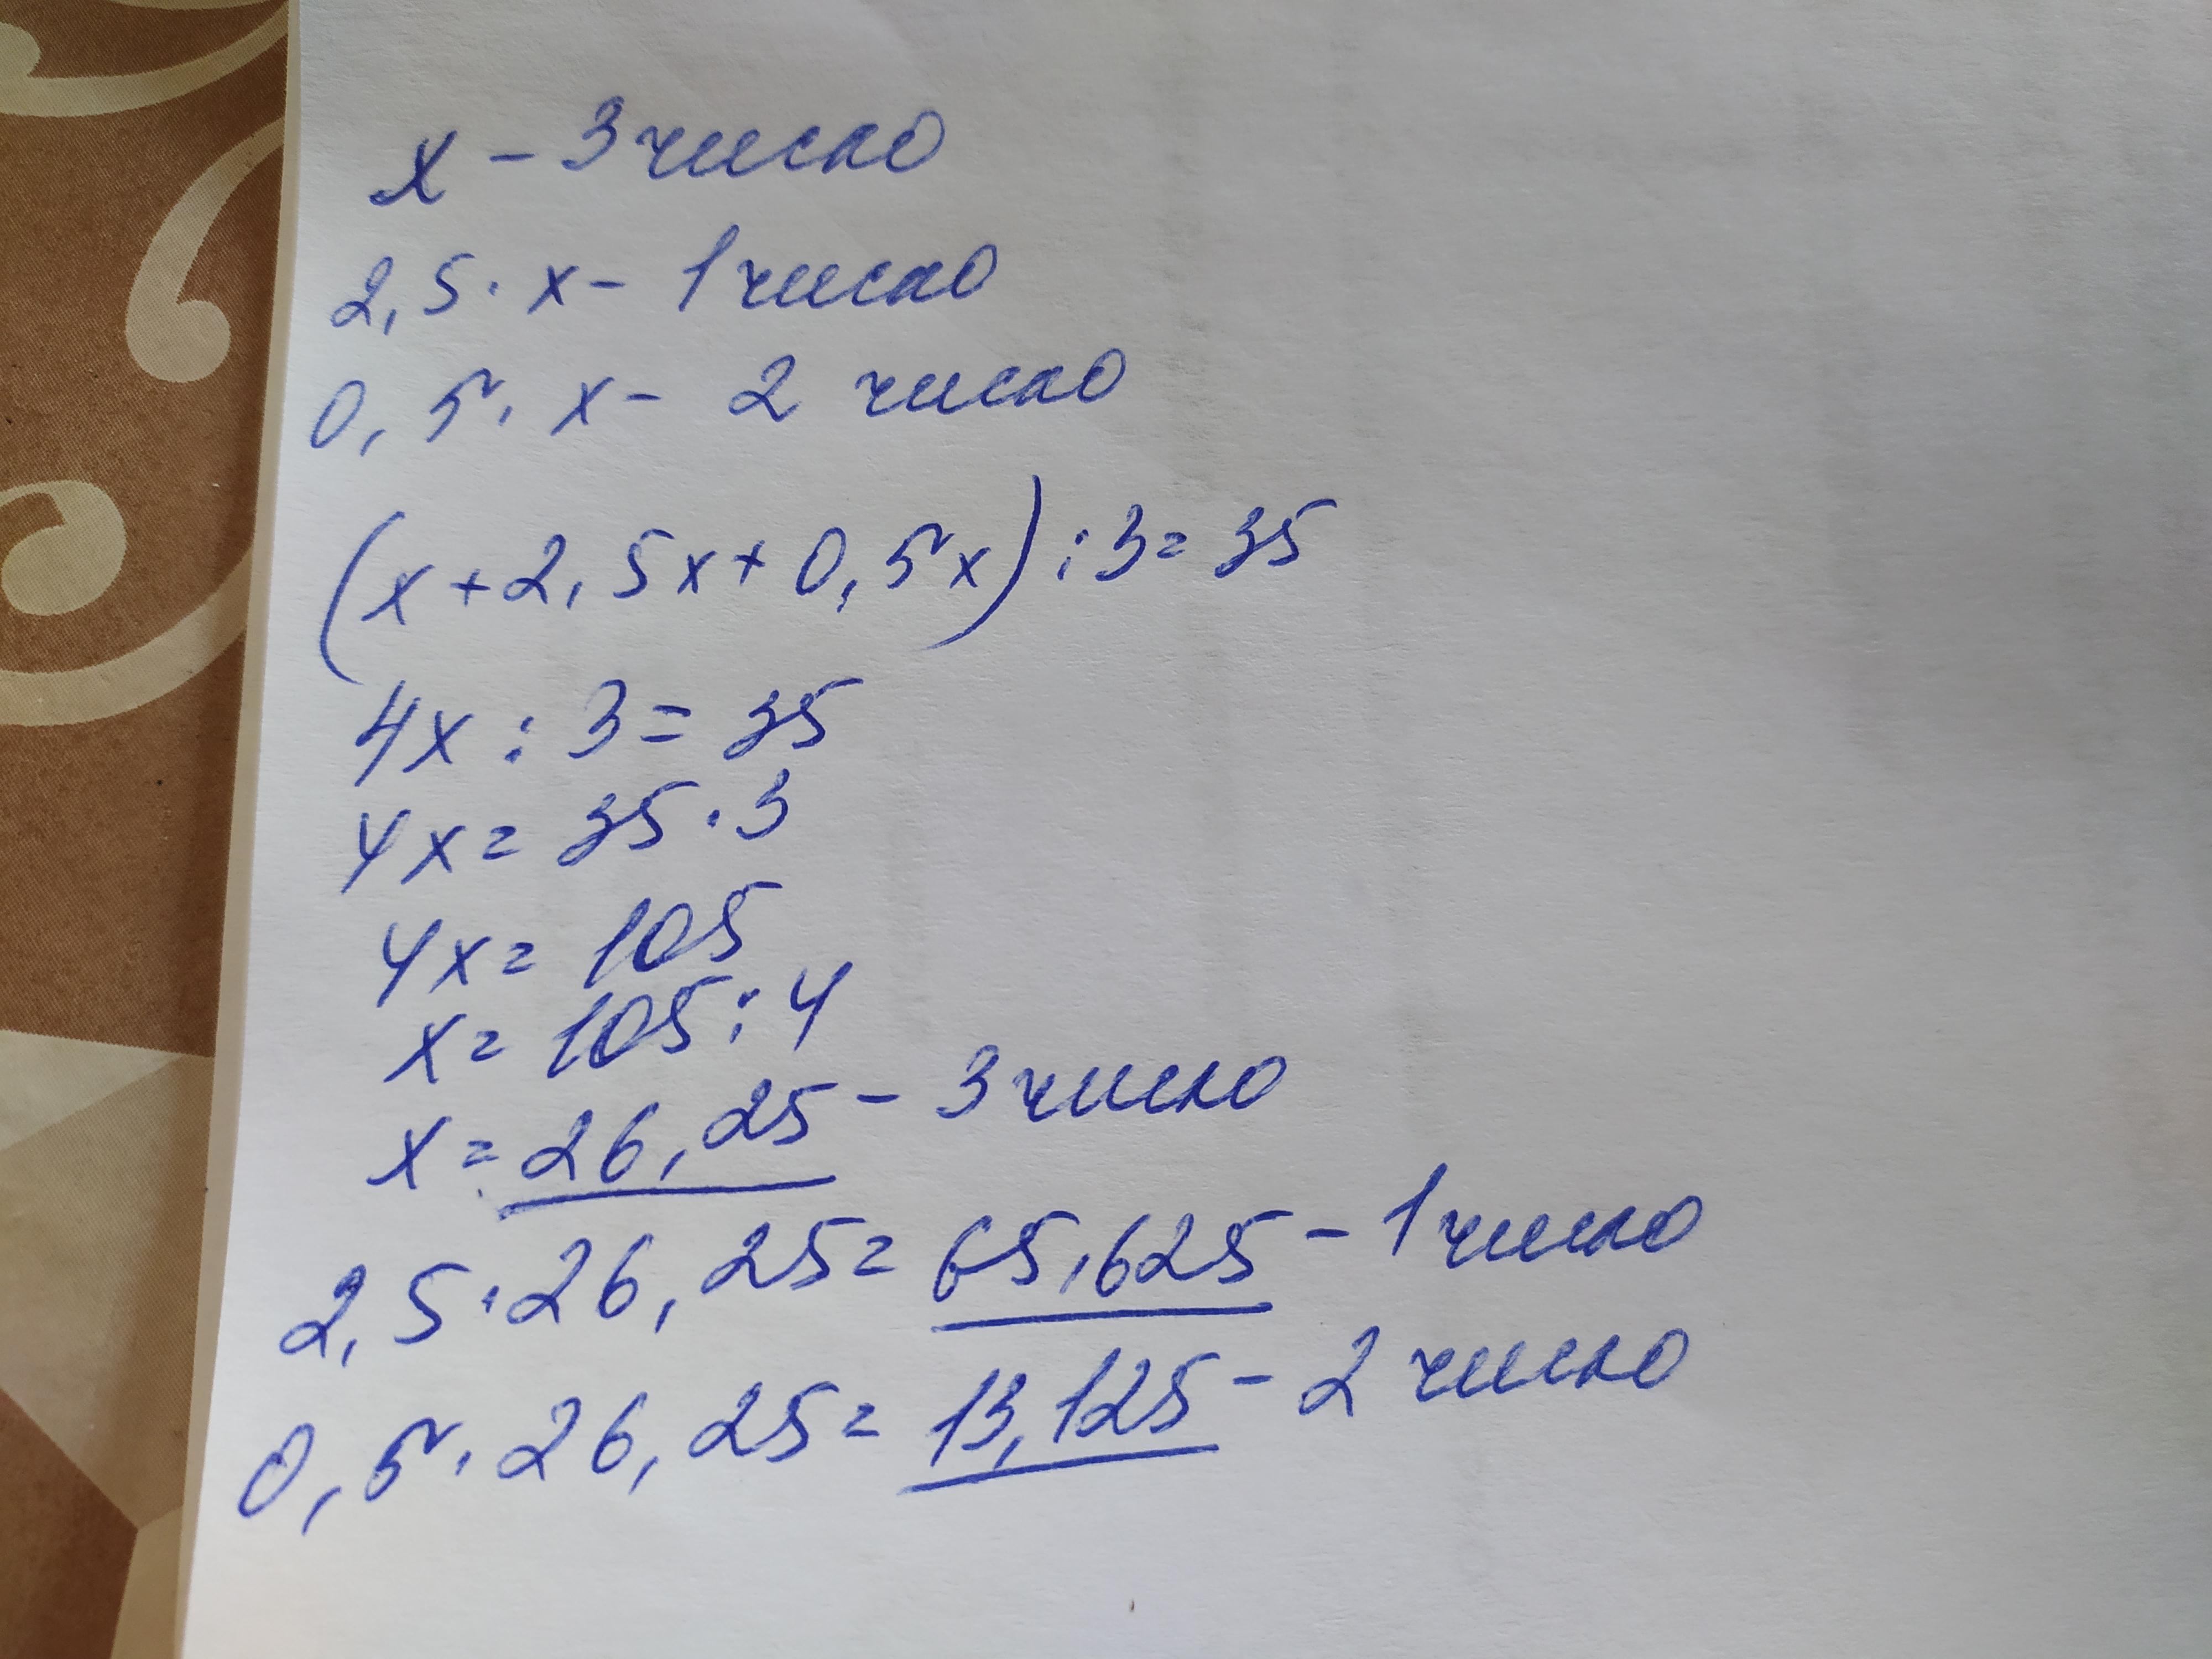 x - 3 число
2,5 · x - 1 число
0,5 · x - 2 число
(x + 2,5x + 0,5x) : 3 = 35
4x : 3 = 35
4x = 35 · 3
4x = 105
x = 105 : 4
x = 26,25 - 3 число
2,5 · 26,25 = 65,625 - 1 число
0,5 · 26,25 = 13,125 - 2 число